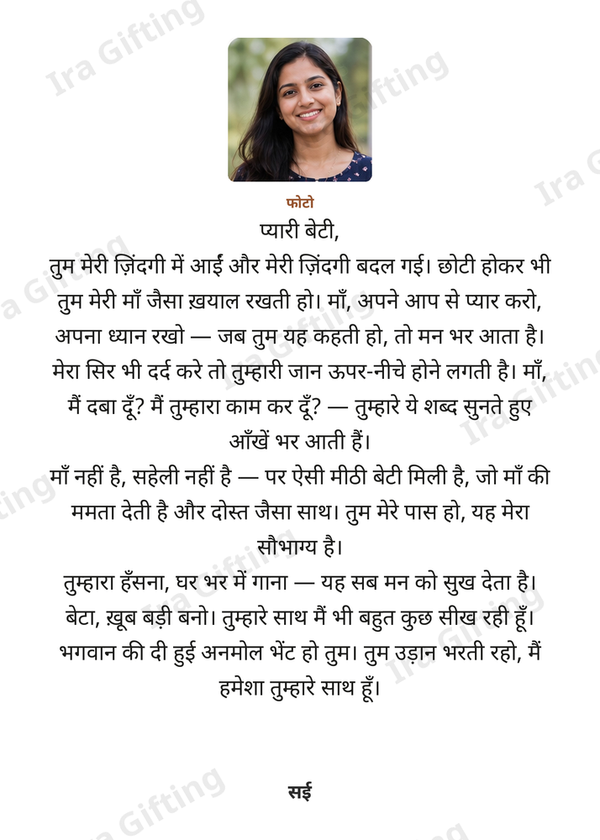 Ira Gifting
Ira Gifting
Ira Gifting
फोटो
प्यारी बेटी,
तुम मेरी ज़िंदगी में आईं और मेरी ज़िंदगी बदल गई। छोटी होकर भी
तुम मेरी माँ जैसा ख़याल रखती हो। माँ, अपने आप से प्यार करो,
अपना ध्यान रखो — जब तुम यह कहती हो, तो मन भर आता है।
मेरा सिर भी दर्द करे तो तुम्हारी जान ऊपर-नीचे होने लगती है। माँ,
मैं दबा दूँ? मैं तुम्हारा काम कर दूँ? — तुम्हारे ये शब्द सुनते हुए
आँखें भर आती हैं।
माँ नहीं है, सहेली नहीं है — पर ऐसी मीठी बेटी मिली है, जो माँ की
ममता देती है और दोस्त जैसा साथ। तुम मेरे पास हो, यह मेरा
सौभाग्य है।
तुम्हारा हँसना, घर भर में गाना — यह सब मन को सुख देता है।
बेटा, ख़ूब बड़ी बनो। तुम्हारे साथ मैं भी बहुत कुछ सीख रही हूँ।
भगवान की दी हुई अनमोल भेंट हो तुम। तुम उड़ान भरती रहो, मैं
हमेशा तुम्हारे साथ हूँ।
सई
Ira Gifting